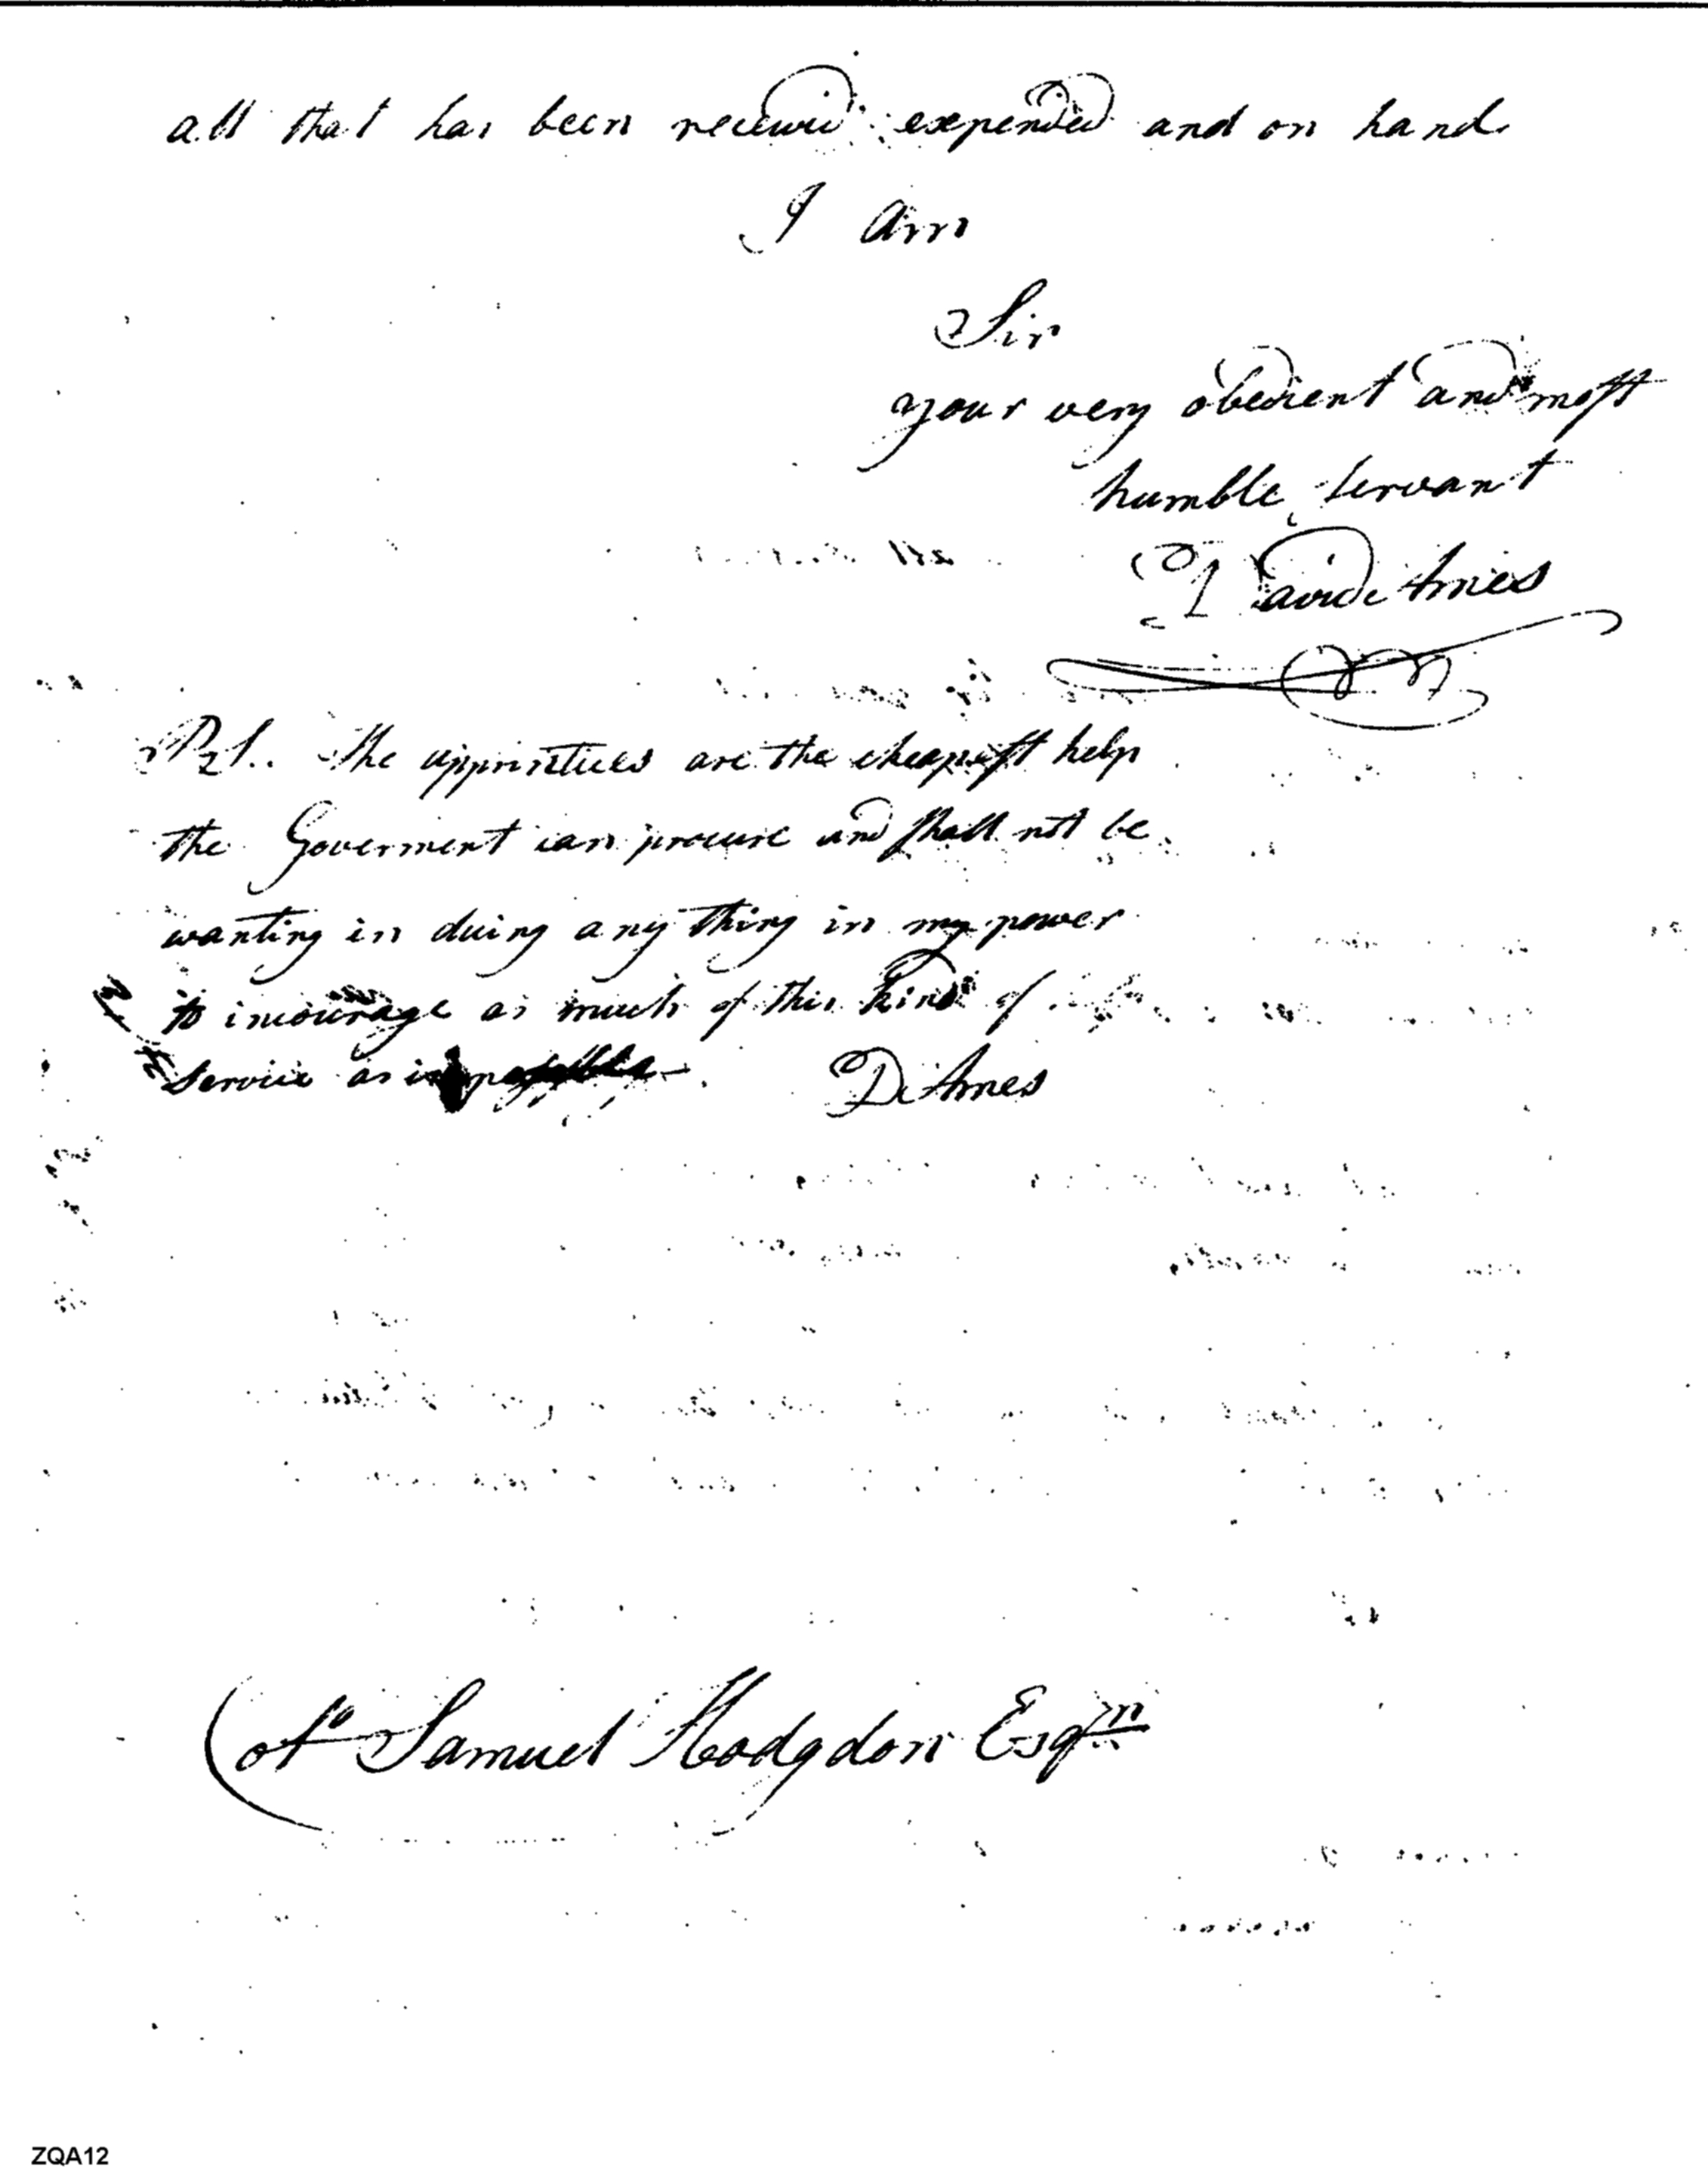 all that has been received expended and on hand
I am
Sir
your very obedient and most
humble servant
David Ames
P.S. The apprintices are the cheapest help
the Goverment can procure and shall not be
wanting in doing any thing in my power
to incourage as much of this kind of
Service as is possible. D Ames
Samuel Hodgdon Esqr
ZQA12